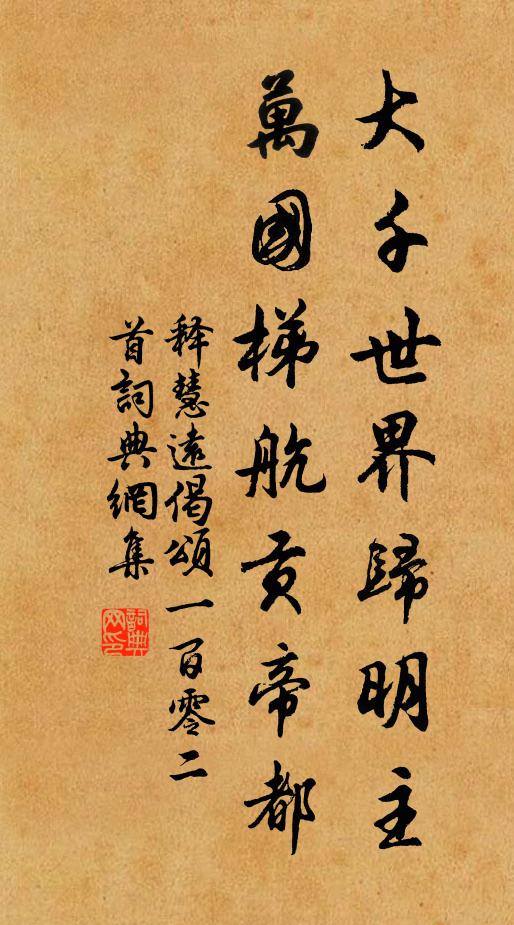 大千世界歸明主
萬國梯航貢帝都
释慧遠偈頌一百零二
首詞典網集
詞典網印